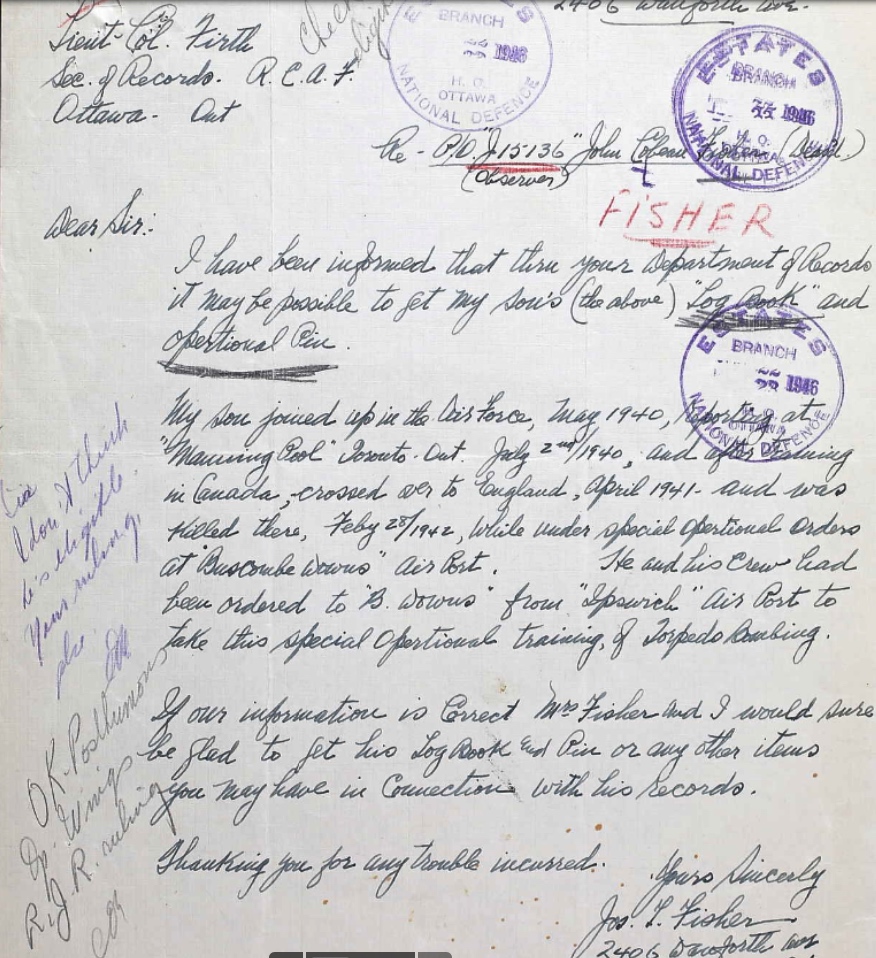 2406 Danforth Ave.
Lieut-Col. Firth
Sec. of Records. R.C.A.F.
Ottawa - Ont
Check
ESTATES
BRANCH
1946
H. Q.
OTTAWA
NATIONAL DEFENCE
ESTATES
BRANCH
1946
H. Q.
OTTAWA
NATIONAL DEFENCE
Re - P/O. "J15136" John Fisher (Dead.)
(Observer)
FISHER
Dear Sir:-
I have been informed that thru your Department of Records
it may be possible to get my son's (the above) "Log Book" and
opertional Pin.
ESTATES
BRANCH
1946
H. Q.
OTTAWA
NATIONAL DEFENCE
My son joined up in the Air Force, May 1940, reporting at
"Manning Pool" Toronto. Ont. July 2nd/1940, and after training
in Canada, crossed over to England, April 1941 - and was
killed there, Feby 28/1942, while under special opertional orders
at "Buscombe Downs" Air Port. He and his crew had
been ordered to "B. Downs" from "Ipswich" Air Port to
take this special opertional training, of Torpedo Bombing.
If our information is correct Mrs Fisher and I would sure
be glad to get his Log Book and Pin or any other items
you may have in connection with his records.
Thanking you for any trouble incurred.
Yours Sincerely
Jos. T. Fisher
2406 Danforth ave
I don't think
he's eligible.
Your ruling,
pls.
OK. Posthumous
Op. Wings
R.J.R. ruling